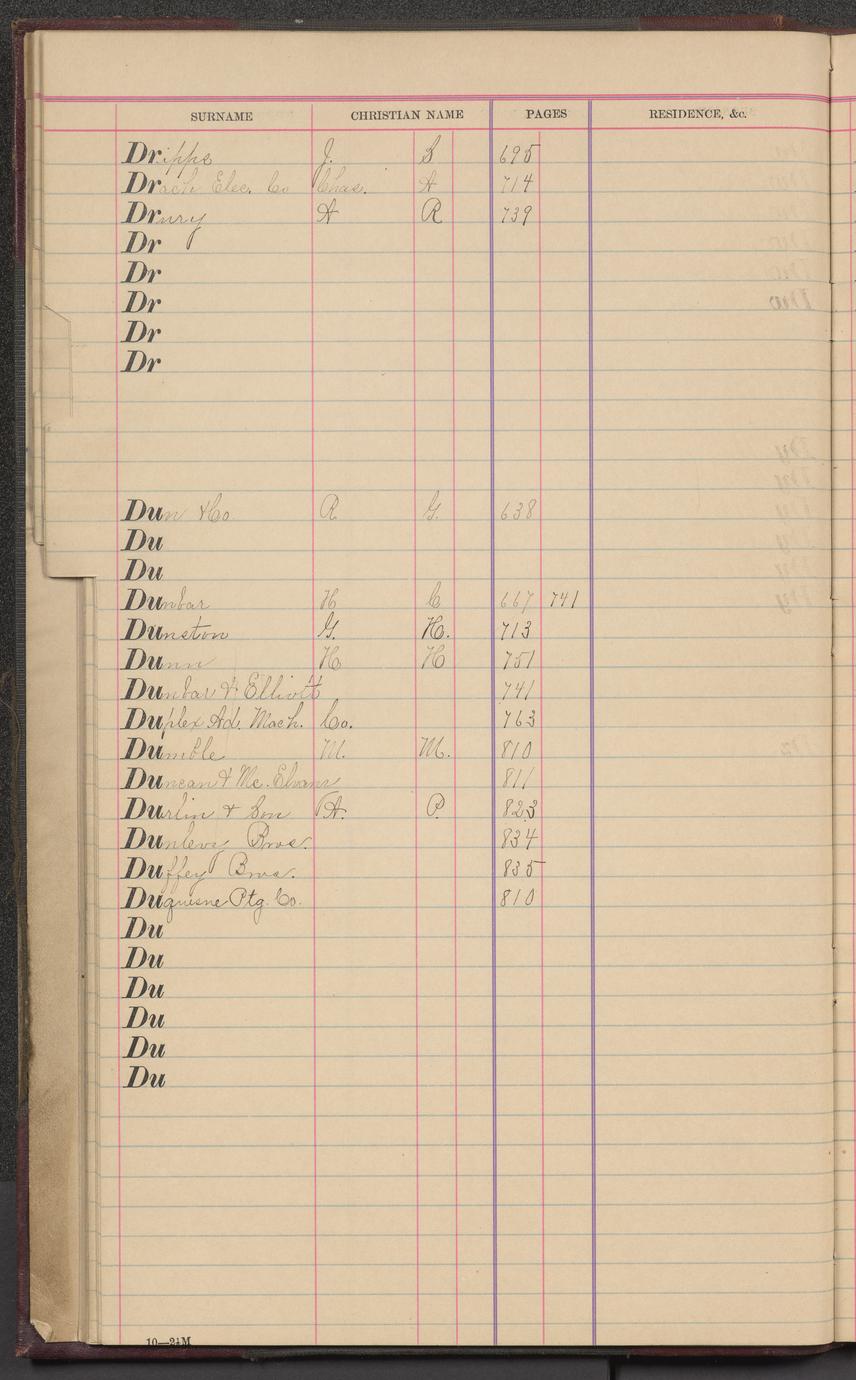 SURNAME CHRISTIAN NAME PAGES RESIDENCE, &c.
Dripps J. S 695
Drach Elec. Co Chas. A 714
Drury A R 739
Dr
Dr
Dr
Dr
Dr
Dun & Co R. G. 638
Du
Du
Dunbar H C 667 741
Dunston G. H. 713
Dunn H H 751
Dunbar & Elliott 741
Duplex Ad. Mach. Co. 763
Dumble M. M. 810
Duncan & Mc. 811
Durlin & Son A. P. 823
Dunlevy Bros. 834
Duffey Bros. 835
Duquesne Ptg. Co. 810
Du
Du
Du
Du
Du
Du
10—2½M